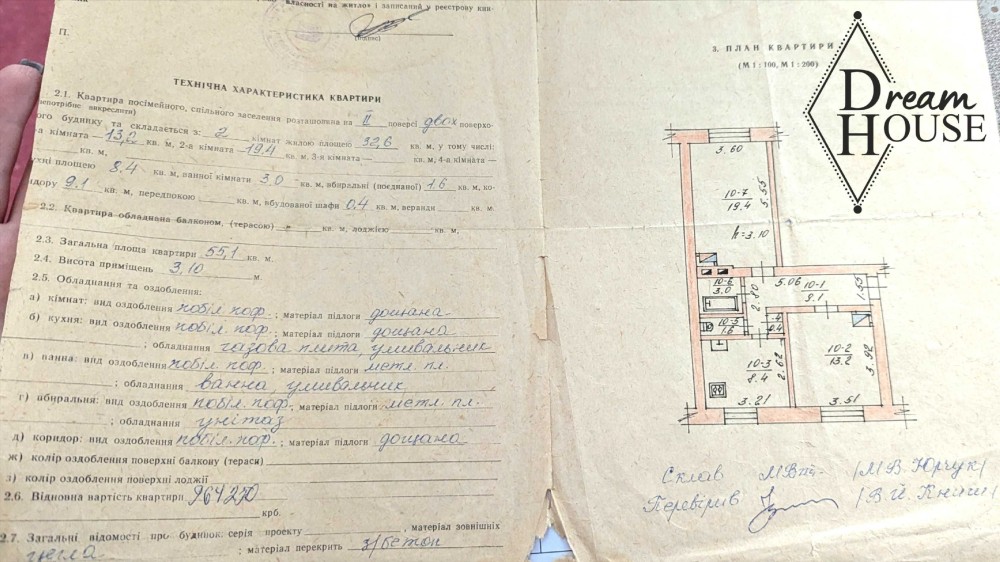 власності на житло» і записаний у реєстрову кни-
П.
(підпис)
ТЕХНІЧНА ХАРАКТЕРИСТИКА КВАРТИРИ
2.1. Квартира посімейного, спільного заселення розташована на II поверсі двох поверхо-
(непотрібне викреслити)
ого будинку та складається з: 2 кімнат жилою площею 32,6 кв. м, у тому числі:
-а кімната 13,2 кв. м, 2-а кімната 19,4 кв. м, 3-я кімната — кв. м, 4-а кімната —
кв. м,
ухні площею 8.4 кв. м, ванної кімнати 3.0 кв. м, вбиральні (поєднаної) 1.6 кв. м, ко-
идору 9.1 кв. м, передпокою кв. м, вбудованої шафи 0,4 кв. м, веранди кв. м.
2.2 Квартира обладнана балконом, (терасою) — кв. м, лоджією кв. м,
2.3. Загальна площа квартири 55,1 кв. м.
2.4. Висота приміщень 3,10 м.
2.5. Обладнання та оздоблення:
а) кімнат: вид оздоблення побіл. поф. ; матеріал підлоги дощана
б) кухня: вид оздоблення побіл. поф. ; матеріал підлоги дощана
; обладнання газова плита, умивальник
в) ванна: вид оздоблення побіл. поф. ; матеріал підлоги метл. пл.
; обладнання ванна, умивальник
г) вбиральня: вид оздоблення побіл. поф. ; матеріал підлоги метл. пл.
; обладнання унітаз
д) коридор: вид оздоблення побіл. поф. ; матеріал підлоги дощана
ж) колір оздоблення поверхні балкону (тераси)
з) колір оздоблення поверхні лоджії
2.6. Відновна вартість квартири 964250
крб.
2.7. Загальні відомості про будинок: серія проекту , матеріал зовнішніх
цегла ; матеріал перекрить з/бетон
3. ПЛАН КВАРТИРИ
(М 1 : 100, М 1 : 200)
Dream
HOUSE
3.60
10-7
19.4
5.55
h=3.10
10-6
3.0
2.80
5.06
10-1
9.1
1.55
10-5
1.6
-4
0.4
10-3
8.4
2.62
10-2
13.2
3.92
3.21
3.51
Склав М.В. /М.В. Юрчук/
Перевірив /В.Й.